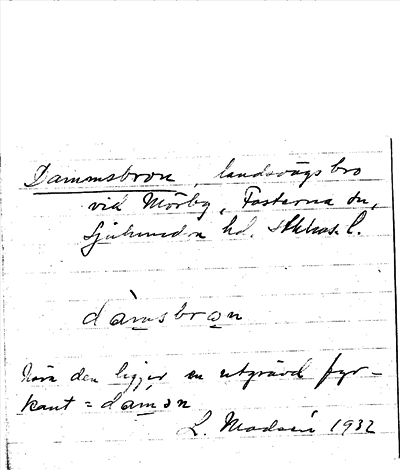 Dammsbron, landsvägsbro
vid Mörby, Fasterna sn,
Sjuhundra hd. Sthlms. l.
dàmsbrɷn
Nära den ligger en utgrävd fyr-
kant = damən
L. Modin 1932